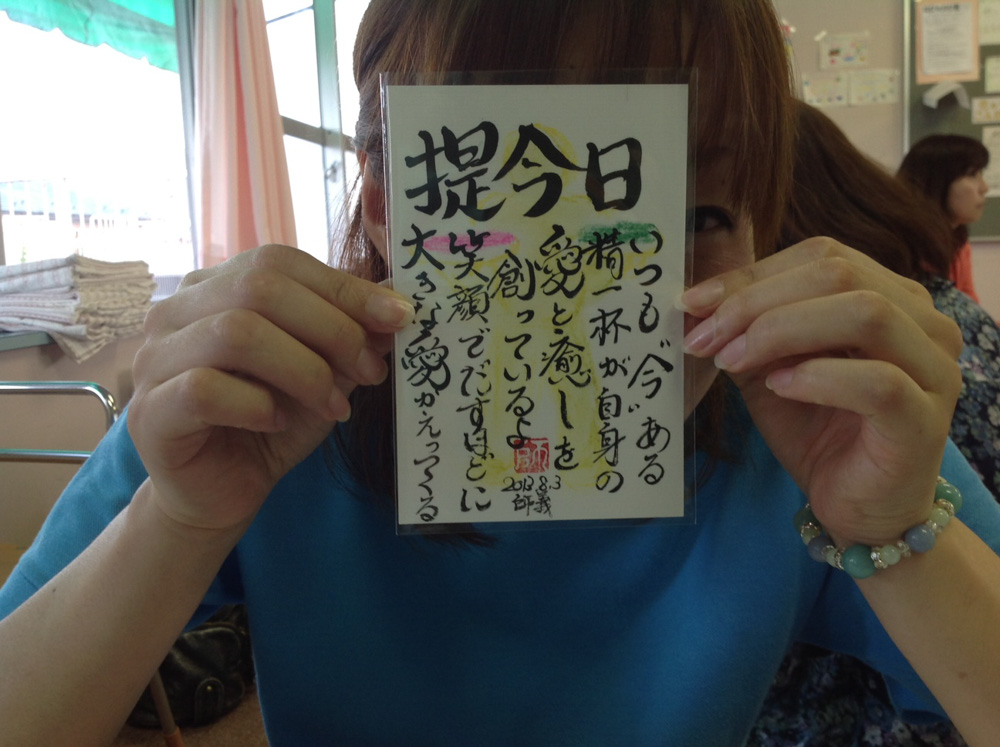 日今提
いつも“今”ある
精一杯が自身の
愛と癒しを
創っているよ
笑顔でだすほどに
大きな愛かえってくる
2013.8.3
師義